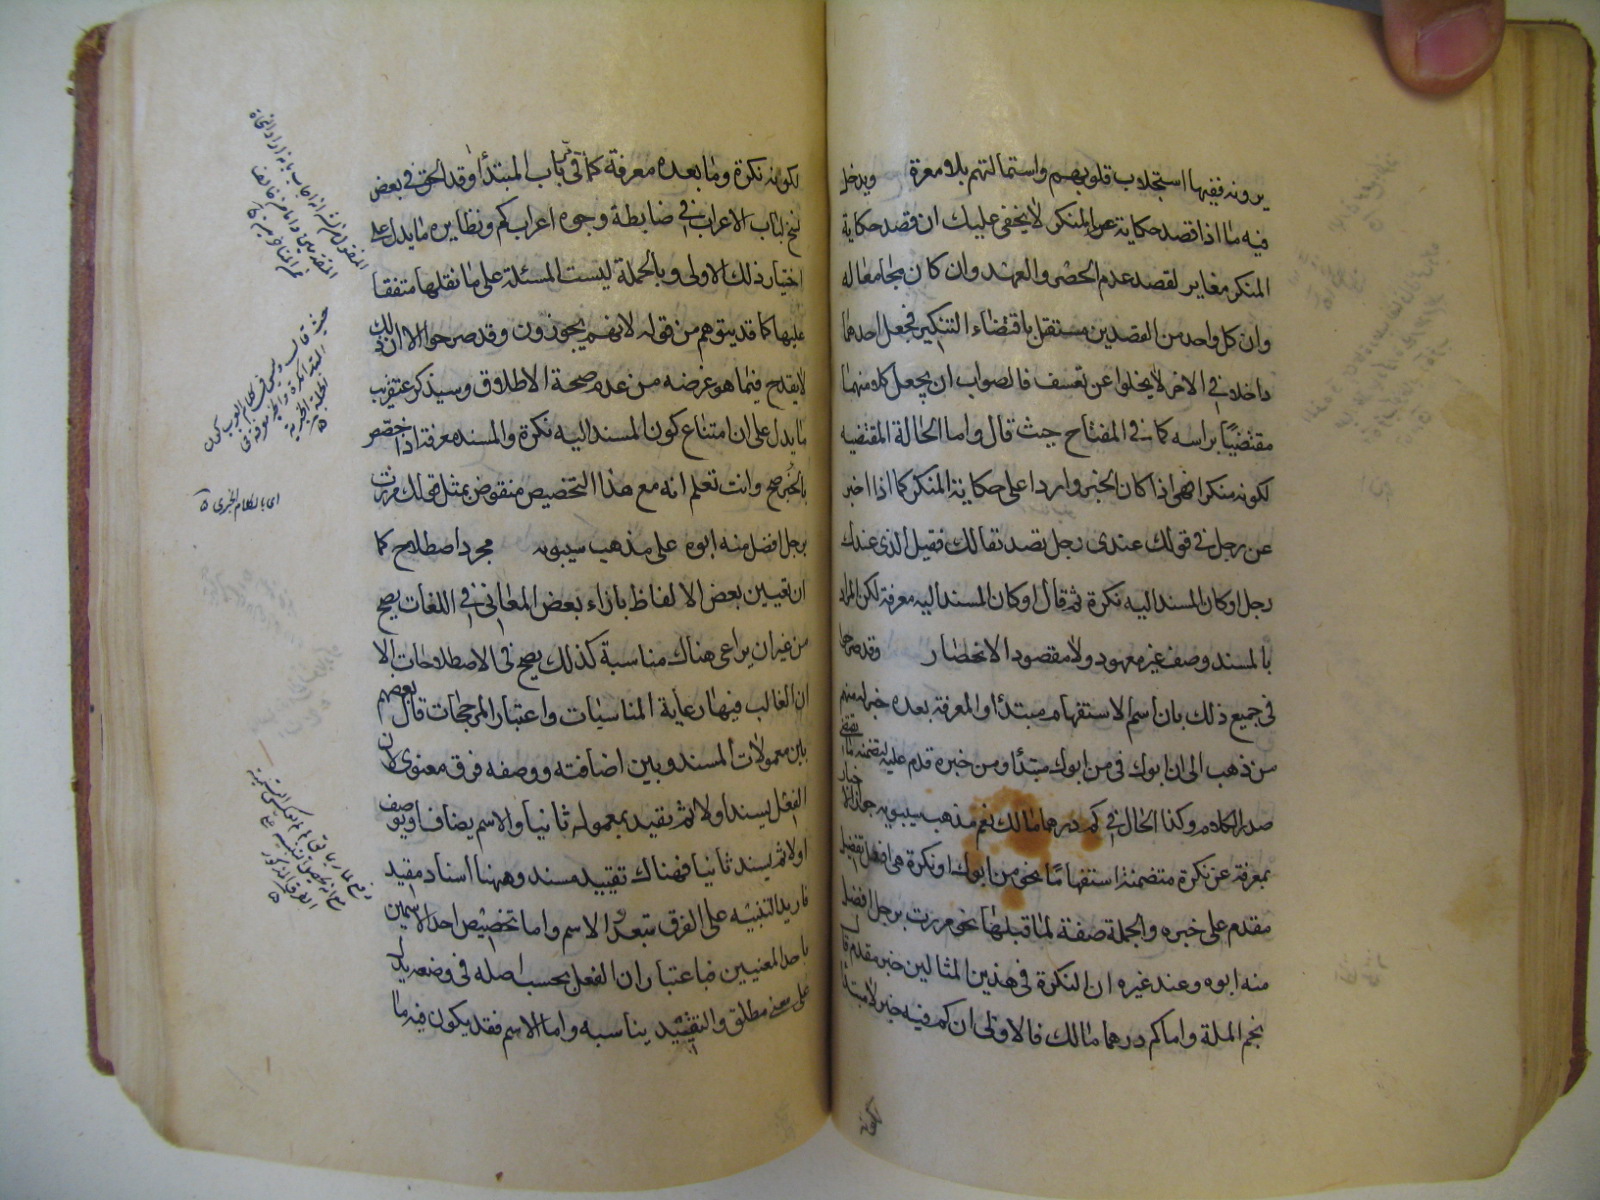 يرونه ففيها استجلاب قلوبهم واستمالتهم بلا معرة ويدخل
فيه ما اذا قصد حكاية عن المنكر لا يخفى عليك ان قصد حكاية
المنكر مغاير لقصد عدم الحصر والعهد وان كان مجامعا له
وان كل واحد من القصدين مستقل باقتضاء التنكير فجعل احدهما
داخلا في الاخر لا يخلوا عن تعسف فالصواب ان يجعل كلا منهما
مقتضيا براسه كما في المفتاح حيث قال واما الحالة المقتضيه
لكونه منكرا فهي اذا كان الخبر واردا على حكاية المنكر كما اذا اخبر
عن رجل في قولك عندي رجل تصديقا لك فقيل الذي عندك
رجل او كان المسند اليه نكرة ثم قال او كان المسند اليه معرفة لكن المراد
بالمسند وصف غير معهود ولا مقصود الانحصار وقد صرحوا
في جميع ذلك بان اسم الاستفهام مبتدأ والمعرفة بعده خبر له منهم
من ذهب الى ان ابوك في من ابوك مبتدأ ومن خبره قدم عليه لتضمنه ما يقتضي
صدر الكلام وكذا الحال في كم درهما مالك نعم مذهب سيبويه جواز الاخبار
بمعرفة عن نكرة متضمنة استفهاما نحو من ابوك او نكرة هي افعل تفضيل
مقدم على خبره والجملة صفة لما قبلها نحو مررت برجل افضل
منه ابوه وعند غيره ان النكرة في هذين المثالين خبر مقدم قال
نجم الملة واما كم درهما مالك فالاولى ان كم فيه خبر لا مبتدا
لكونه
لكونه نكرة وما بعده معرفة كما في باب المبتدأ وقد الحق في بعض
نسخ لباب الاعراب في ضابطة وجوه اعراب كم ونظايره ما يدل على
اختيار ذلك الاولى وبالجملة ليست المسئلة على ما نقلها متفقا
عليها كما قد يتوهم من قوله لانهم يجوزون وقد صرحوا الا ان ذلك
لا يقدح فيما هو غرضه من عدم صحة الاطلاق وسيذكر عن قريب
ما يدل على ان امتناع كون المسند اليه نكرة والمسند معرفة اذا خصص
بالخبر صح وانت تعلم انه مع هذا التخصيص منقوض بمثل قولك مررت
برجل افضل منه ابوه على مذهب سيبويه مجرد اصطلاح كما
ان تعيين بعض الالفاظ بازاء بعض المعاني في اللغات يصح
من غير ان يراعى هناك مناسبة كذلك يصح في الاصطلاحات الا
ان الغالب فيها رعاية المناسبات واعتبار المرجحات قال بعضهم
بين معمولات المسند وبين اضافته ووصفه فرق معنوي لان
الفعل يسند اولا ثم يقيد بمعموله ثانيا والاسم يضاف او يوصف
اولا ثم يسند ثانيا فهناك تقييد مسند وههنا اسناد مقيد
فاريد التنبيه على الفرق بتعدد الاسم واما تخصيص احد الاسمين
باحد المعنيين فباعتبار ان الفعل بحسب اصله في وضعه يدل
على معنى مطلق والتقييد يناسبه واما الاسم فقد يكون فيه ما
اي بالكلام الخبري